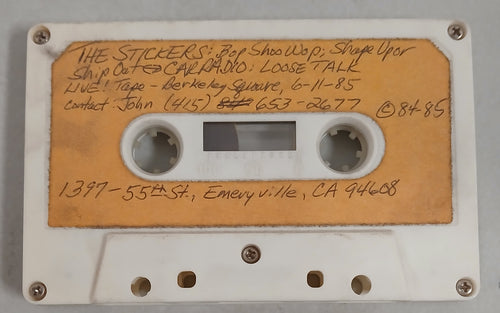 THE STICKERS: Bop Shoo Wop; Shape Up or
Ship Out CAR RADIO: LOOSE TALK
LIVE! Tape - Berkeley Square, 6-11-85
contact: John (415) 653-2677 © 84-85
1397-55th St., Emeryville, CA 94608